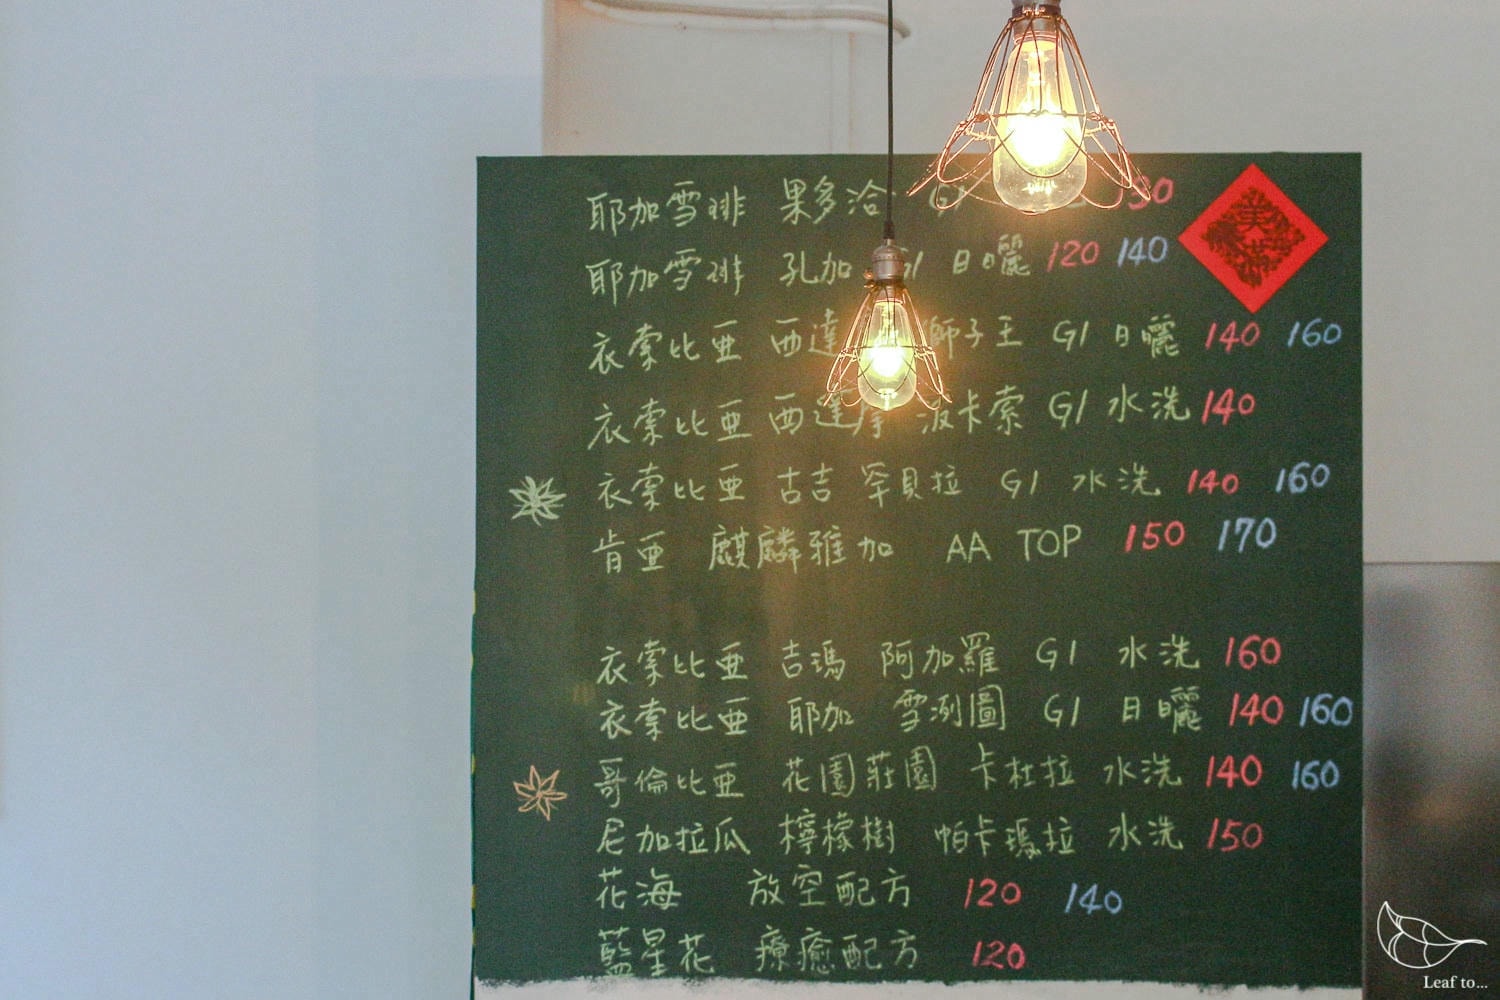 耶加雪啡 果多洽 G1
耶加雪啡 孔加 G1 日曬 120 140
衣索比亞 西達 獅子王 G1 日曬 140 160
衣索比亞 西達摩 波卡索 G1 水洗 140
衣索比亞 古吉 罕貝拉 G1 水洗 140 160
肯亞 麒麟雅加 AA TOP 150 170
衣索比亞 吉瑪 阿加羅 G1 水洗 160
衣索比亞 耶加 雪洌圖 G1 日曬 140 160
哥倫比亞 花園莊園 卡杜拉 水洗 140 160
尼加拉瓜 檸檬樹 帕卡瑪拉 水洗 150
花海 放空配方 120 140
藍星花 療癒配方 120
Leaf to...